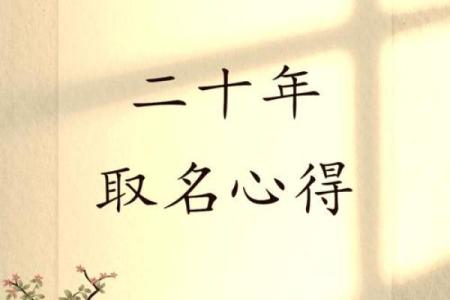 二十年
取名心得